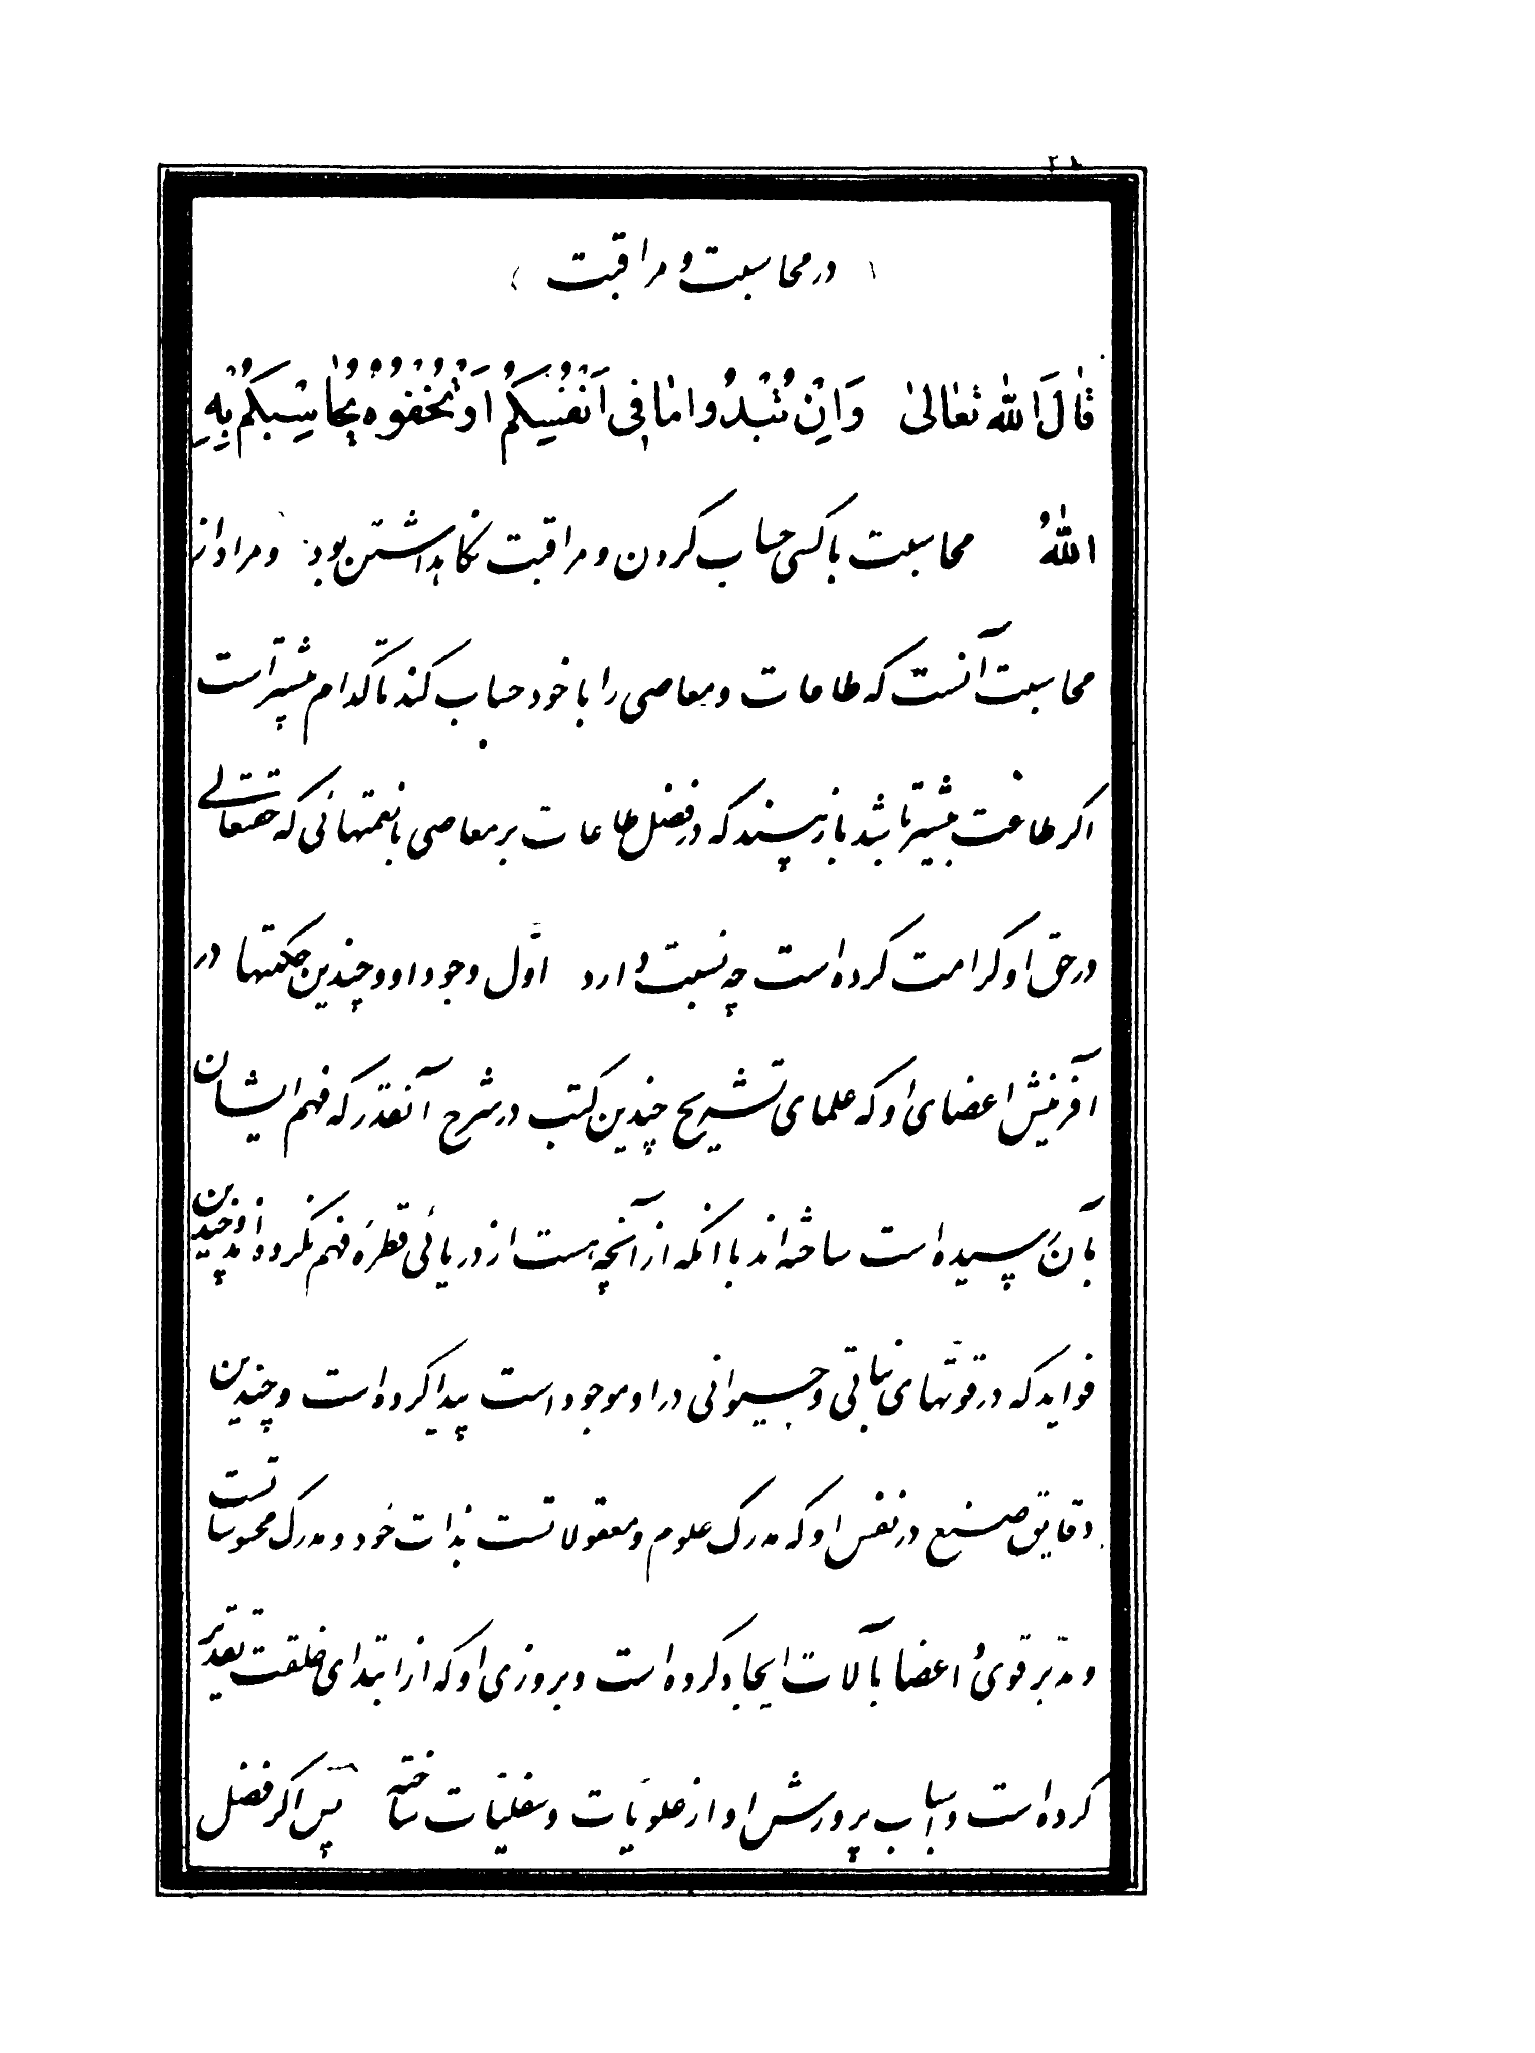 ( در محاسبت و مراقبت )
قٰالَ اللهُ تَعٰالیٰ وَاِنْ تُبْدُوا مٰا فِی اَنْفُسِکُمْ اَوْ تُخْفُوهُ یُحٰاسِبْکُمْ بِهِ
اللهُ محاسبت با کسی حساب کردن و مراقبت نکاهداشتن بود و مراد از
محاسبت آنست که طاعات و معاصی را با خود حساب کند تا کدام بیشتر است
اکر طاعت بیشتر باشد باز بیند که در فضل طاعات بر معاصی با نعمتهائی که حقتعالی
در حق او کرامت کرده است چه نسبت دارد اوّل وجود او و چندین حکمتها در
آفرینش اعضای او که علمای تشریح چندین کتب در شرح آنقدر که فهم ایشان
بآن رسیده است ساخته‌اند با آنکه از آنچه هست از دریائی قطرهٔ فهم نکرده‌اند و چندین
فواید که در قوّتهای نباتی و حیوانی در او موجود است پیدا کرده است و چندین
دقایق صنع در نفس او که مدرک علوم و معقولاتست بذات خود و مدرک محسوساتست
و مدبّر قوی و اعضا بآلات ایجاد کرده است و بروزی او که از ابتدای خلقت تقدیر
کرده است و اسباب پرورش او از علویّات و سفلیّات ساخته پس اکر فضل